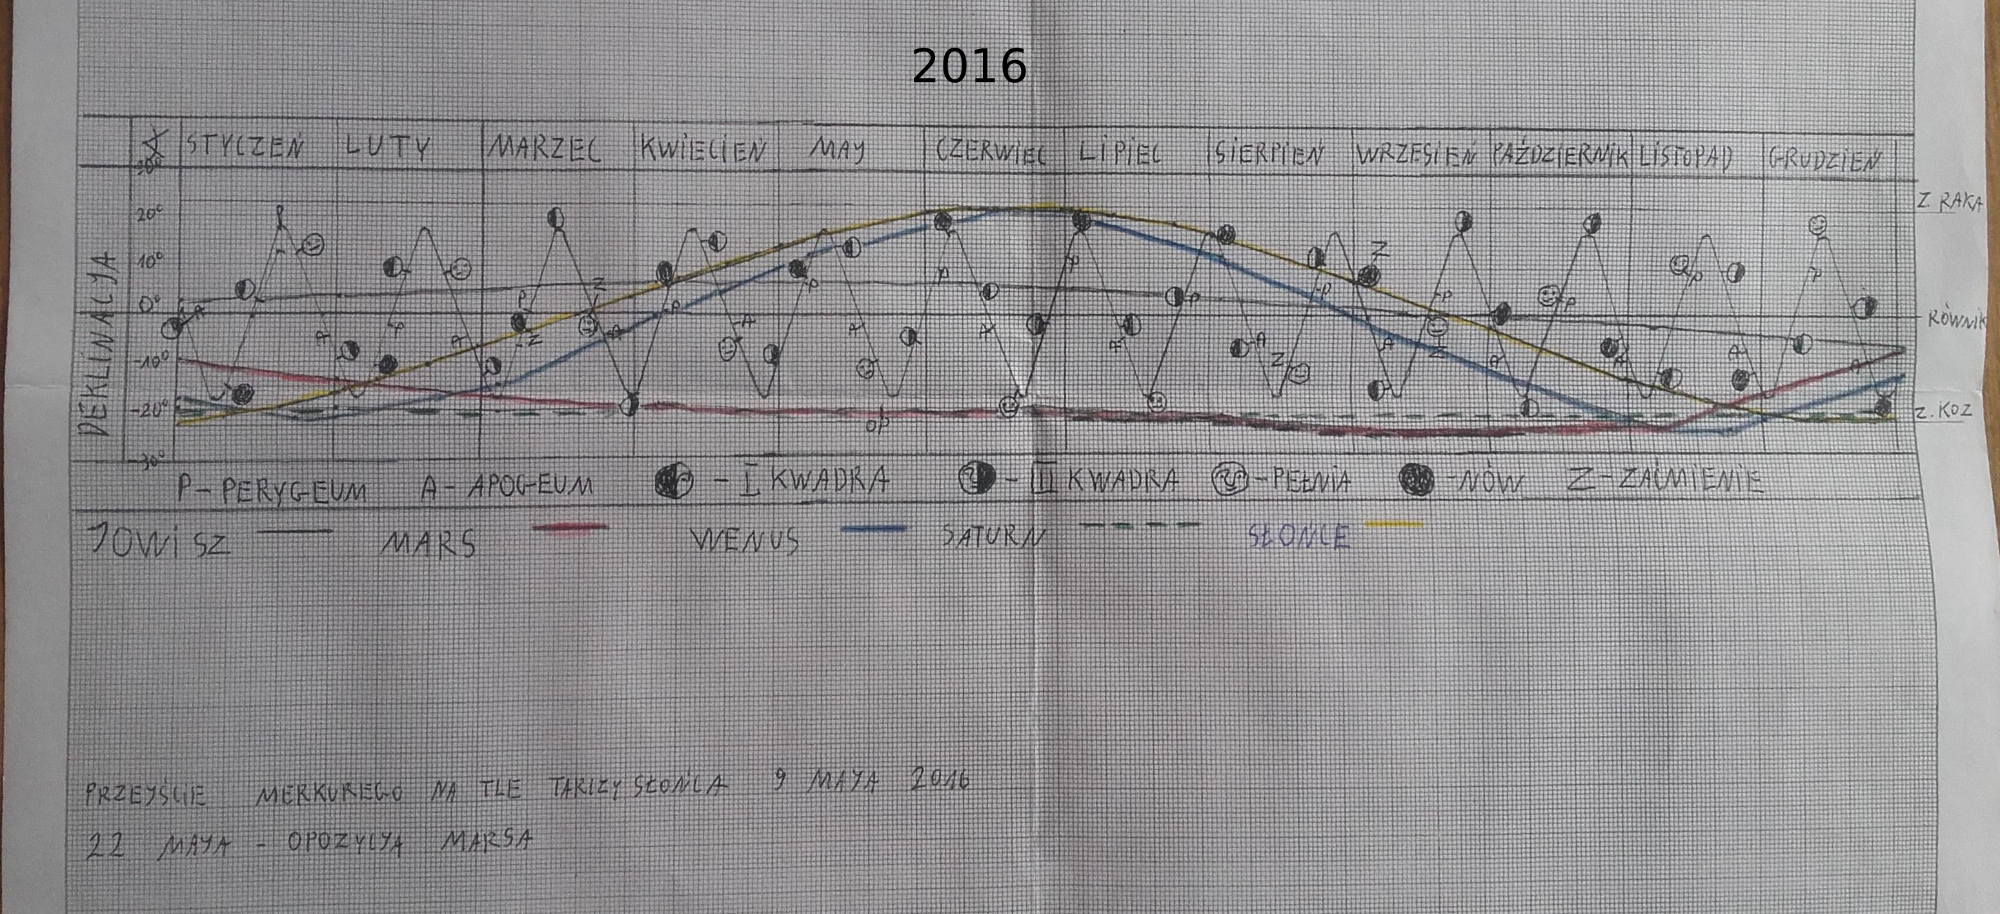 2016
X STYCZEŃ LUTY MARZEC KWIECIEŃ MAY CZERWIEC LIPIEC SIERPIEŃ WRZESIEŃ PAŹDZIERNIK LISTOPAD GRUDZIEŃ
30°
20°
10°
0°
-10°
-20°
-30°
DEKLINACYA
Z RAKA
RÓWNIK
Z. KOZ
op
P - PERYGEUM A - APOGEUM - I KWADRA - II KWADRA - PEŁNIA - NÓW Z - ZAĆMIENIE
JOWISZ MARS WENUS SATURN SŁOŃCE
PRZEYŚCIE MERKUREGO NA TLE TARCZY SŁOŃCA 9 MAYA 2016
22 MAYA - OPOZYCYA MARSA